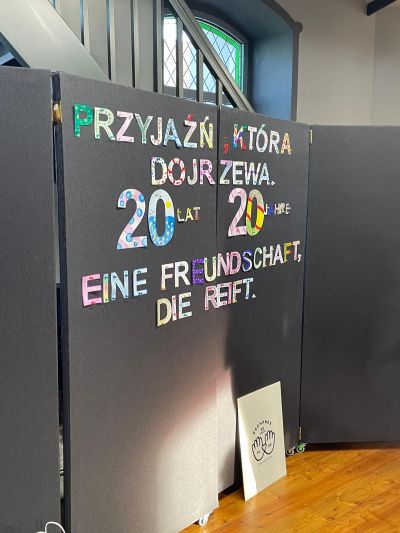 PRZYJAŹŃ , KTÓRA
DOJRZEWA.
20 LAT 20 JAHRE
EINE FREUNDSCHAFT,
DIE REIFT.
EXCHANGE